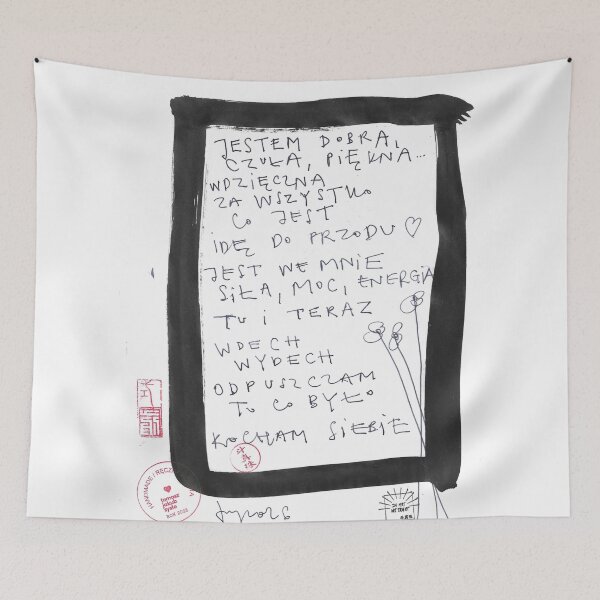 JESTEM DOBRA,
CZUŁA, PIĘKNA...
WDZIĘCZNA
ZA WSZYSTKO
CO JEST
IDĘ DO PRZODU ♡
JEST WE MNIE
SIŁA, MOC, ENERGIA
TU I TERAZ
WDECH
WYDECH
ODPUSZCZAM
TO CO BYŁO
KOCHAM SIEBIE